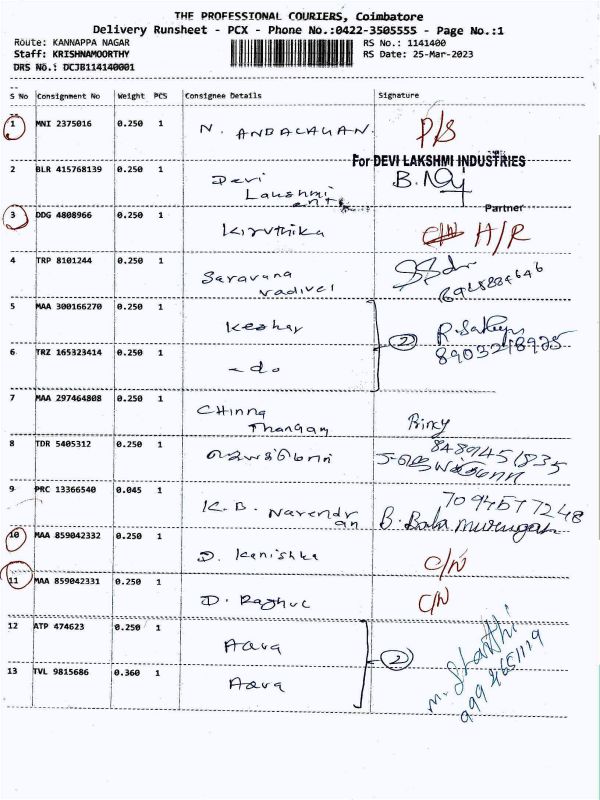 THE PROFESSIONAL COURIERS, Coimbatore
Delivery Runsheet - PCX - Phone No.:0422-3505555 - Page No.:1
Route: KANNAPPA NAGAR RS No.: 1141400
Staff: KRISHNAMOORTHY RS Date: 25-Mar-2023
DRS No.: DCJB114140001
S No Consignment No Weight PCS Consignee Details Signature
1 MNI 2375016 0.250 1 N. ANDALAHAN. P/S
For DEVI LAKSHMI INDUSTRIES
2 BLR 415768139 0.250 1 Devi
Lakshmi
Partner
3 DDG 4808966 0.250 1 Kiruthika H/R
4 TRP 8101244 0.250 1 Saravana
vadivel
5 MAA 300166270 0.250 1 Keshav (2)
8903218925
6 TRZ 165323414 0.250 1 - do
7 MAA 297464808 0.250 1 Chinna
Thangam Rincy
8 TDR 5405312 0.250 1 8489451835
9 PRC 13366540 0.045 1 K. B. Narendr
an 7094577248
B. Bala murugan
10 MAA 859042332 0.250 1 D. Kanishka C/N
11 MAA 859042331 0.250 1 D. Raghul C/N
12 ATP 474623 0.250 1 Aara (2)
13 TVL 9815686 0.360 1 Aara M. Shanthi